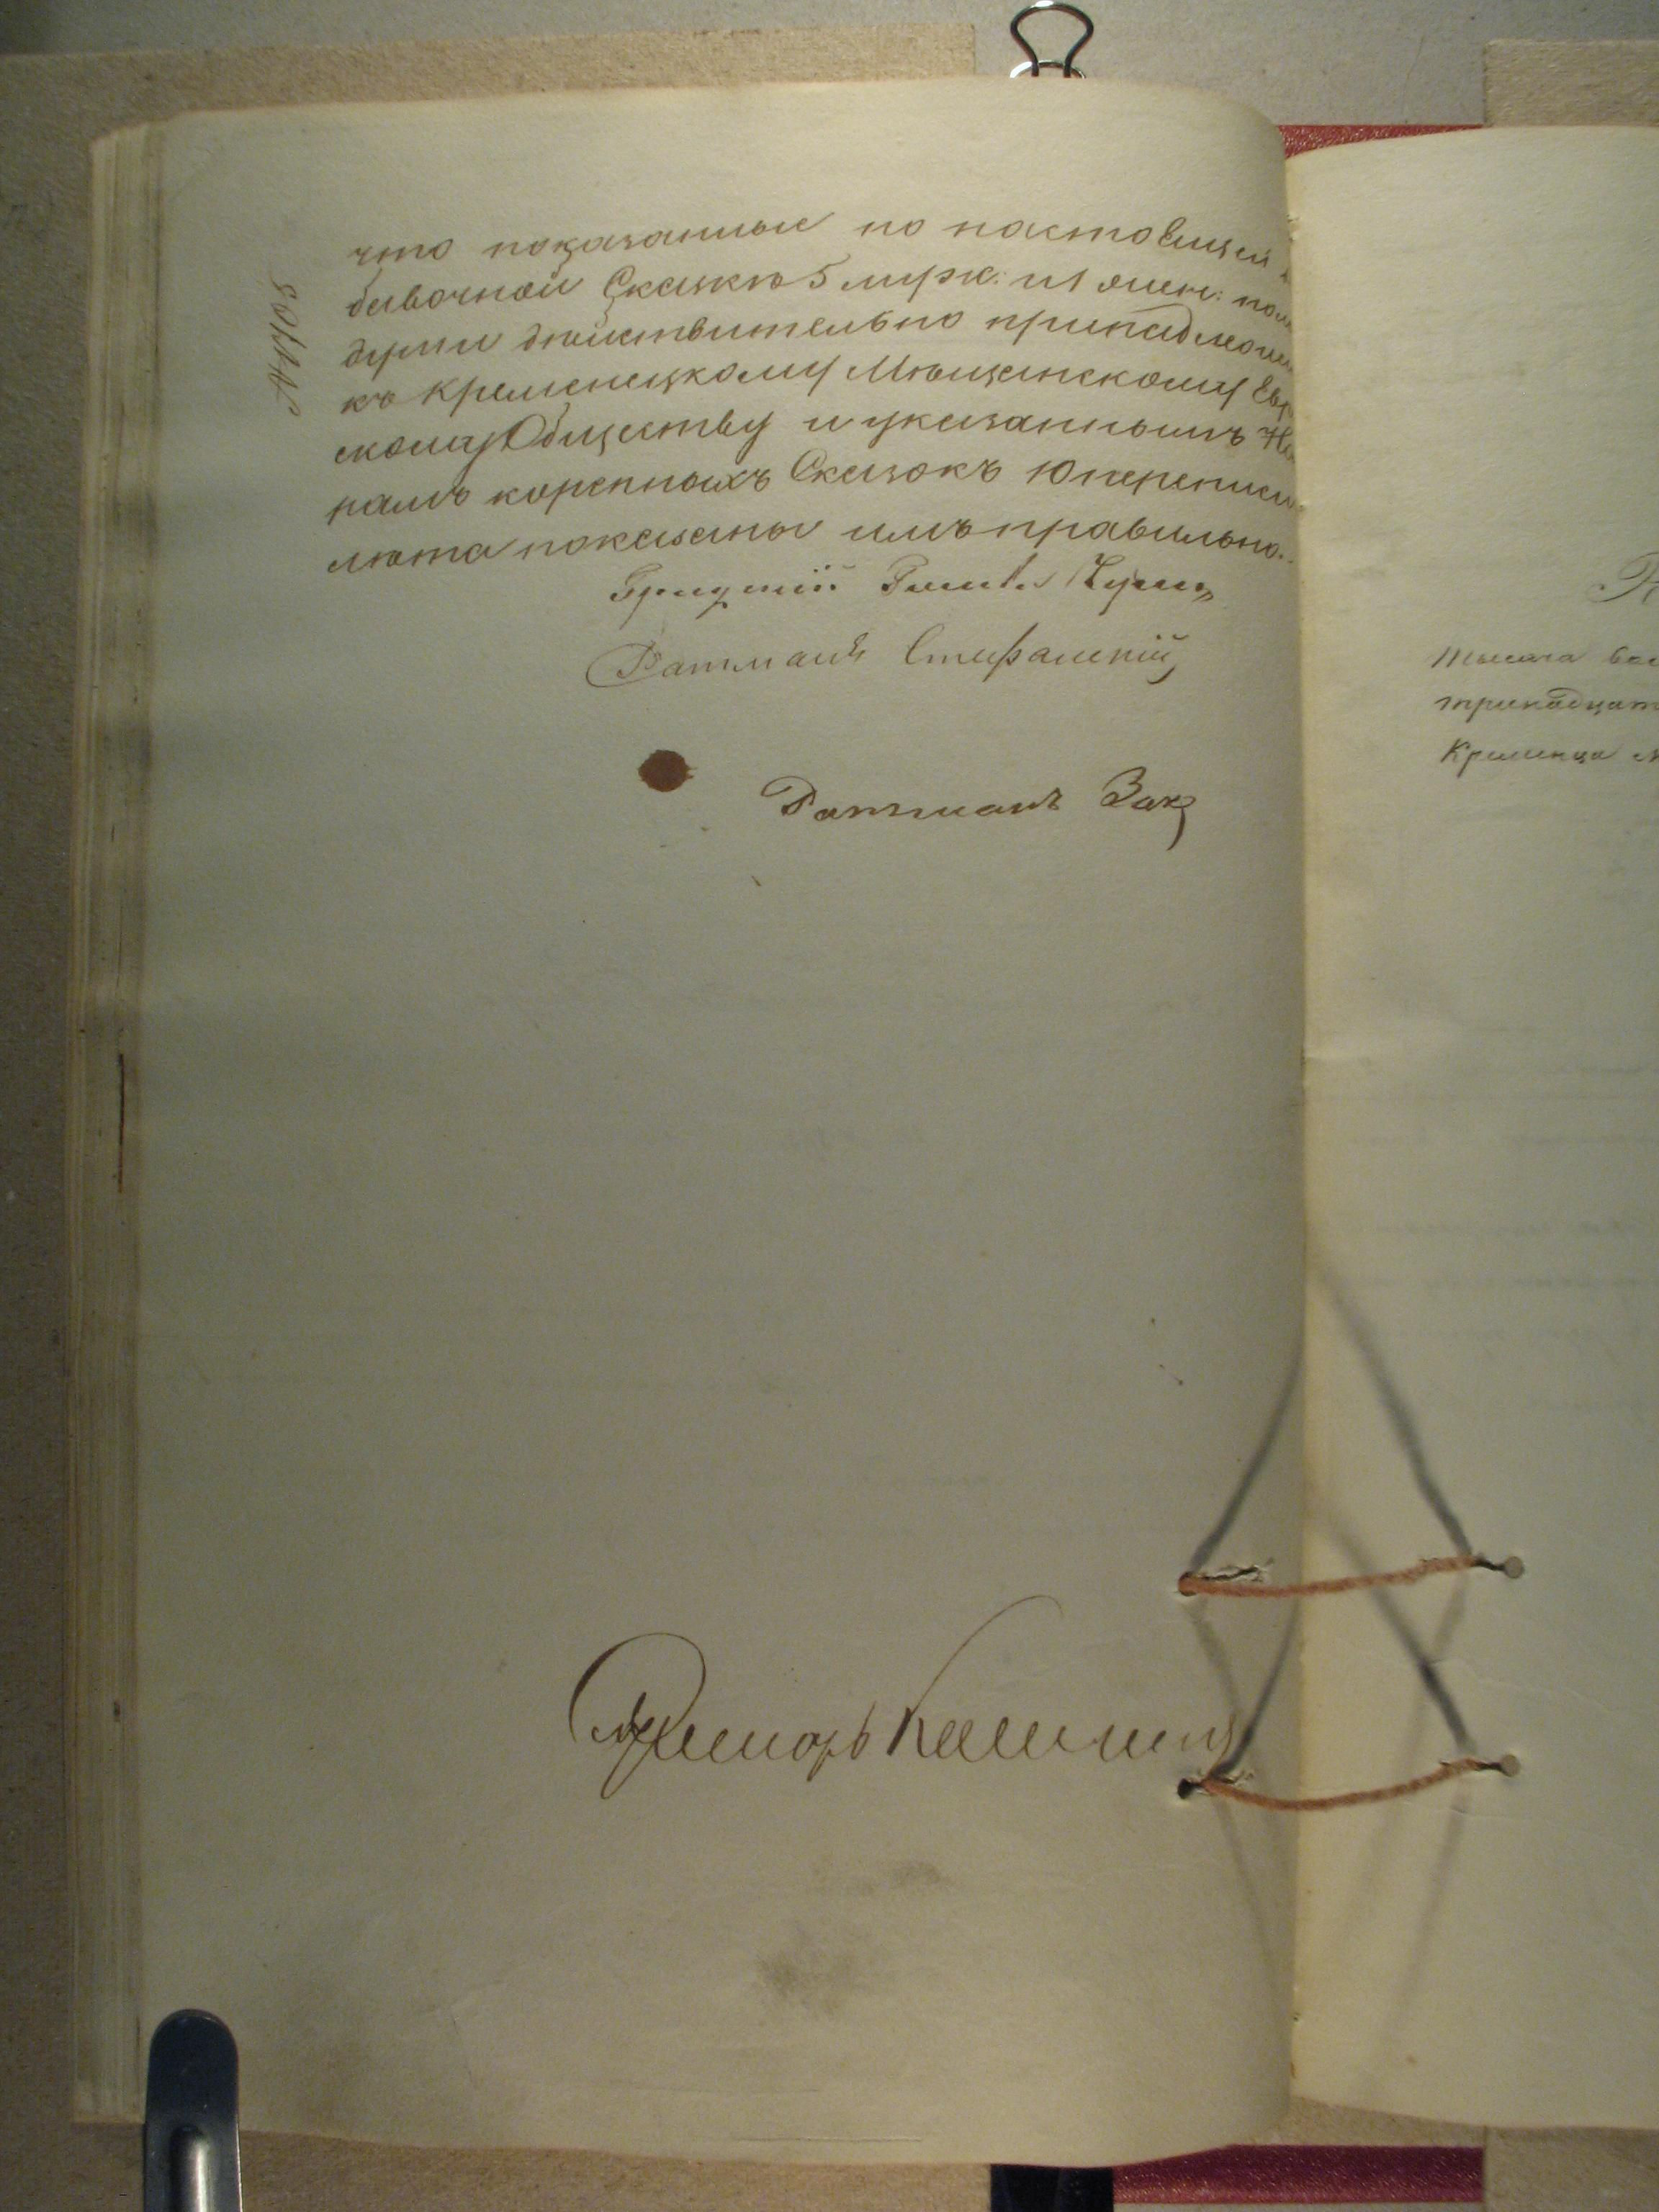 что показанные по настоящей
бавочной Сказкѣ 5 муж: и 1 женс: пола
души дѣйствительно принадлежат
къ Кременецкому Мѣщанскому Евр
скому Обществу и указаннымъ Но
рамъ коренныхъ Сказокъ 10 переписи
лѣта показаны имъ правильно.
Ратманъ Стефанскій
Ратманъ Закъ
тысяча вос
тринадцат
Кременца м